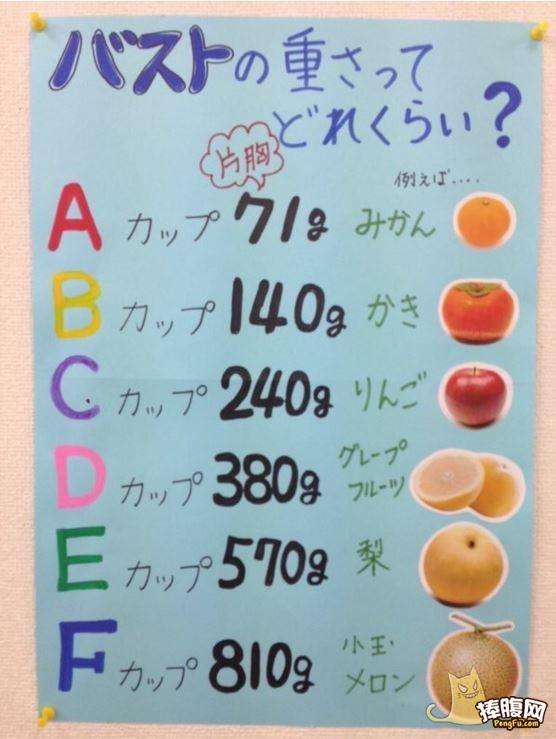 バストの重さって
どれくらい？
片胸
例えば....
A カップ 71g みかん
B カップ 140g かき
C カップ 240g りんご
D カップ 380g グレープ
フルーツ
E カップ 570g 梨
F カップ 810g 小玉
メロン
捧腹网
PengFu.com